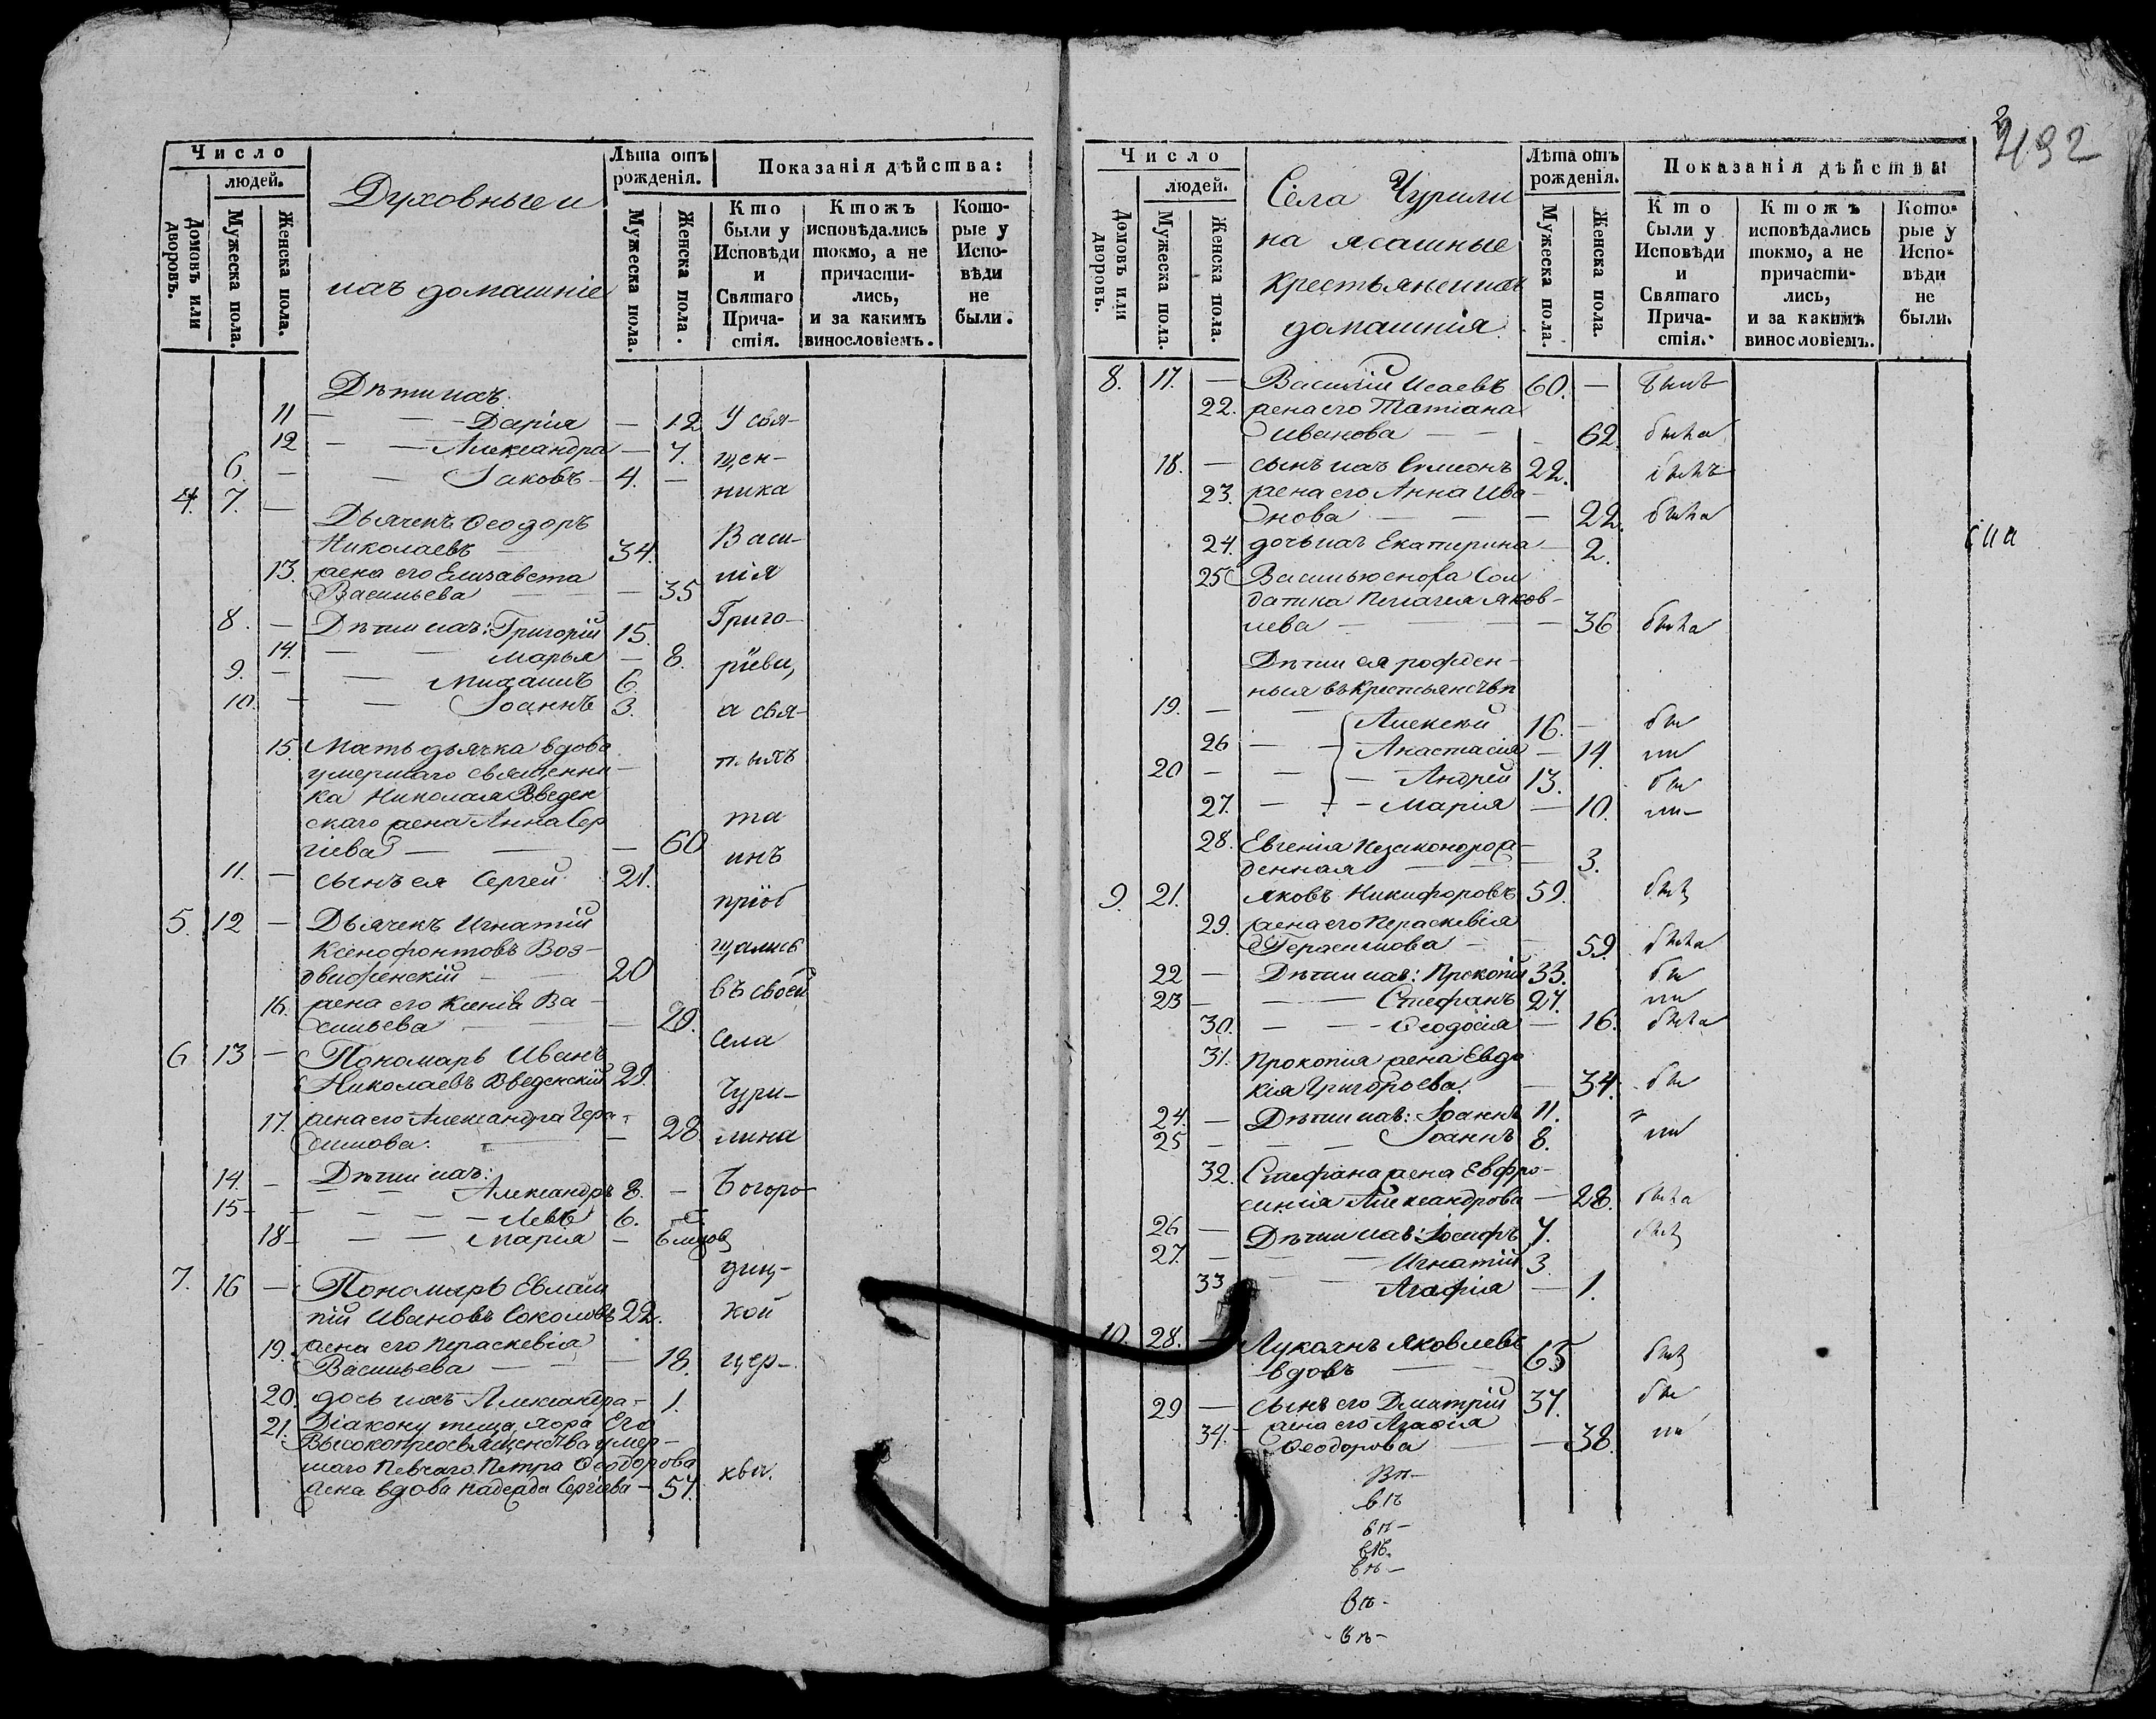 Число
людей.
Домовъ или дворовъ.
Мужеска пола.
Женска пола.
Духовные и
ихъ домашніе
Лѣта отъ
рожденія.
Мужеска пола.
Женска пола.
Показанія дѣйства:
Кто
были у
Исповѣди
и
Святаго
Прича-
стія.
Ктожъ
исповѣдались
токмо, а не
причасти-
лись,
и за какимъ
винословіемъ.
Кото-
рые у
Испо-
вѣди
не
были.
Дѣти ихъ
11 — — Дарія — 12 У свя-
12 — — Александра — 7. щен-
6. — — Іаковъ 4. — ника
4. 7. — Дьячекъ Ѳеодоръ
Николаевъ 34. Васи-
13. жена его Елизавета лія
Васильева — — 35
8. — Дѣти ихъ: Григорій 15. Григо-
14. — — Марья — 8. рьева,
9. — — Михаилъ 6.
10. — — Іоаннъ 3. а свя-
15. Мать дьячка вдова
умершаго священни- тыхъ
ка Николая Введен
скаго жена Анна Сер та
гіева — — — 60 инъ
11. — сынъ ея Сергей 21.
пріоб
5. 12 — Дьячекъ Игнатій
Ксенофонтовъ Воз- щались
движенскій — 20 въ своей
16. жена его Ксенія Ва-
сильева — — 20. села
6 13 — Пономарь Иванъ
Николаевъ Введенскій 29. Чури-
17. жена его Александра Гера-
симова. — 28 лина
14. — Дѣти ихъ:
Александръ 8. — Богоро-
15 — — Левъ 6.
18 — — Марія — 6 мѣсяц
диц-
7. 16 — Пономарь Евлам
пій Ивановъ Соколовъ 22. кой
19. жена его Параскевія
Васильева — — 18. цер-
20. дочь ихъ Александра — 1.
21. Діакону теща хора Его
Высокопреосвященства умер-
шаго Певчаго Петра Ѳеодорова
жена вдова Надежда Сергіева — 57. кви.
492
Число
людей.
Домовъ или дворовъ.
Мужеска пола.
Женска пола.
Села Чурили
на ясашные
крестьяне и ихъ
домашнія
Лѣта отъ
рожденія.
Мужеска пола.
Женска пола.
Показанія дѣйства:
Кто
были у
Исповѣди
и
Святаго
Прича-
стія.
Ктожъ
исповѣдались
токмо, а не
причасти-
лись,
и за какимъ
винословіемъ.
Кото-
рые у
Испо-
вѣди
не
были.
8. 17. — Василій Исаевъ 60. — былъ
22. жена его Татіана
Иванова — — 62. была
18. — сынъ ихъ Симеонъ 22. былъ
23. жена его Анна Ива-
нова — — — 22. была
24. дочь ихъ Екатерина — 2.
25 Василью сноха Сол
датка Пелагея Яков-
лева — — — 36 была
Дѣти ея рожден-
ныя въ крестьянствѣ
19. — — Алексей 16. — бы
26 — — Анастасія — 14. ли
20 — — Андрей 13. бы
27. — — Марія — 10. ли
28. Евгенія незаконорож-
денная — 3.
9. 21. Яковъ Никифоровъ 59. былъ
29. жена его Параскевія
Герасимова — 59. была
22 — Дѣти ихъ: Прокопій 33. бы
23 — — Стефанъ 27. ли
30. — — Ѳеодосія — 16. была
31. Прокопія жена Евдо
кія Григорьева. — 34. бы
24. — Дѣти ихъ: Іоаннъ 11.
25 — — Іоаннъ 8. ли
32. Стефана жена Евфро-
синія Александрова — 28. была
26 — Дѣти ихъ: Іосифъ 7. былъ
27. — — Игнатій 3.
33 — — Агафія — 1.
10. 28. — Лукоянъ Яковлевъ
вдовъ — 65 былъ
29 — сынъ его Дмитрій 37. бы
34. — жена его Агафія
Ѳеодорова — 38. ли